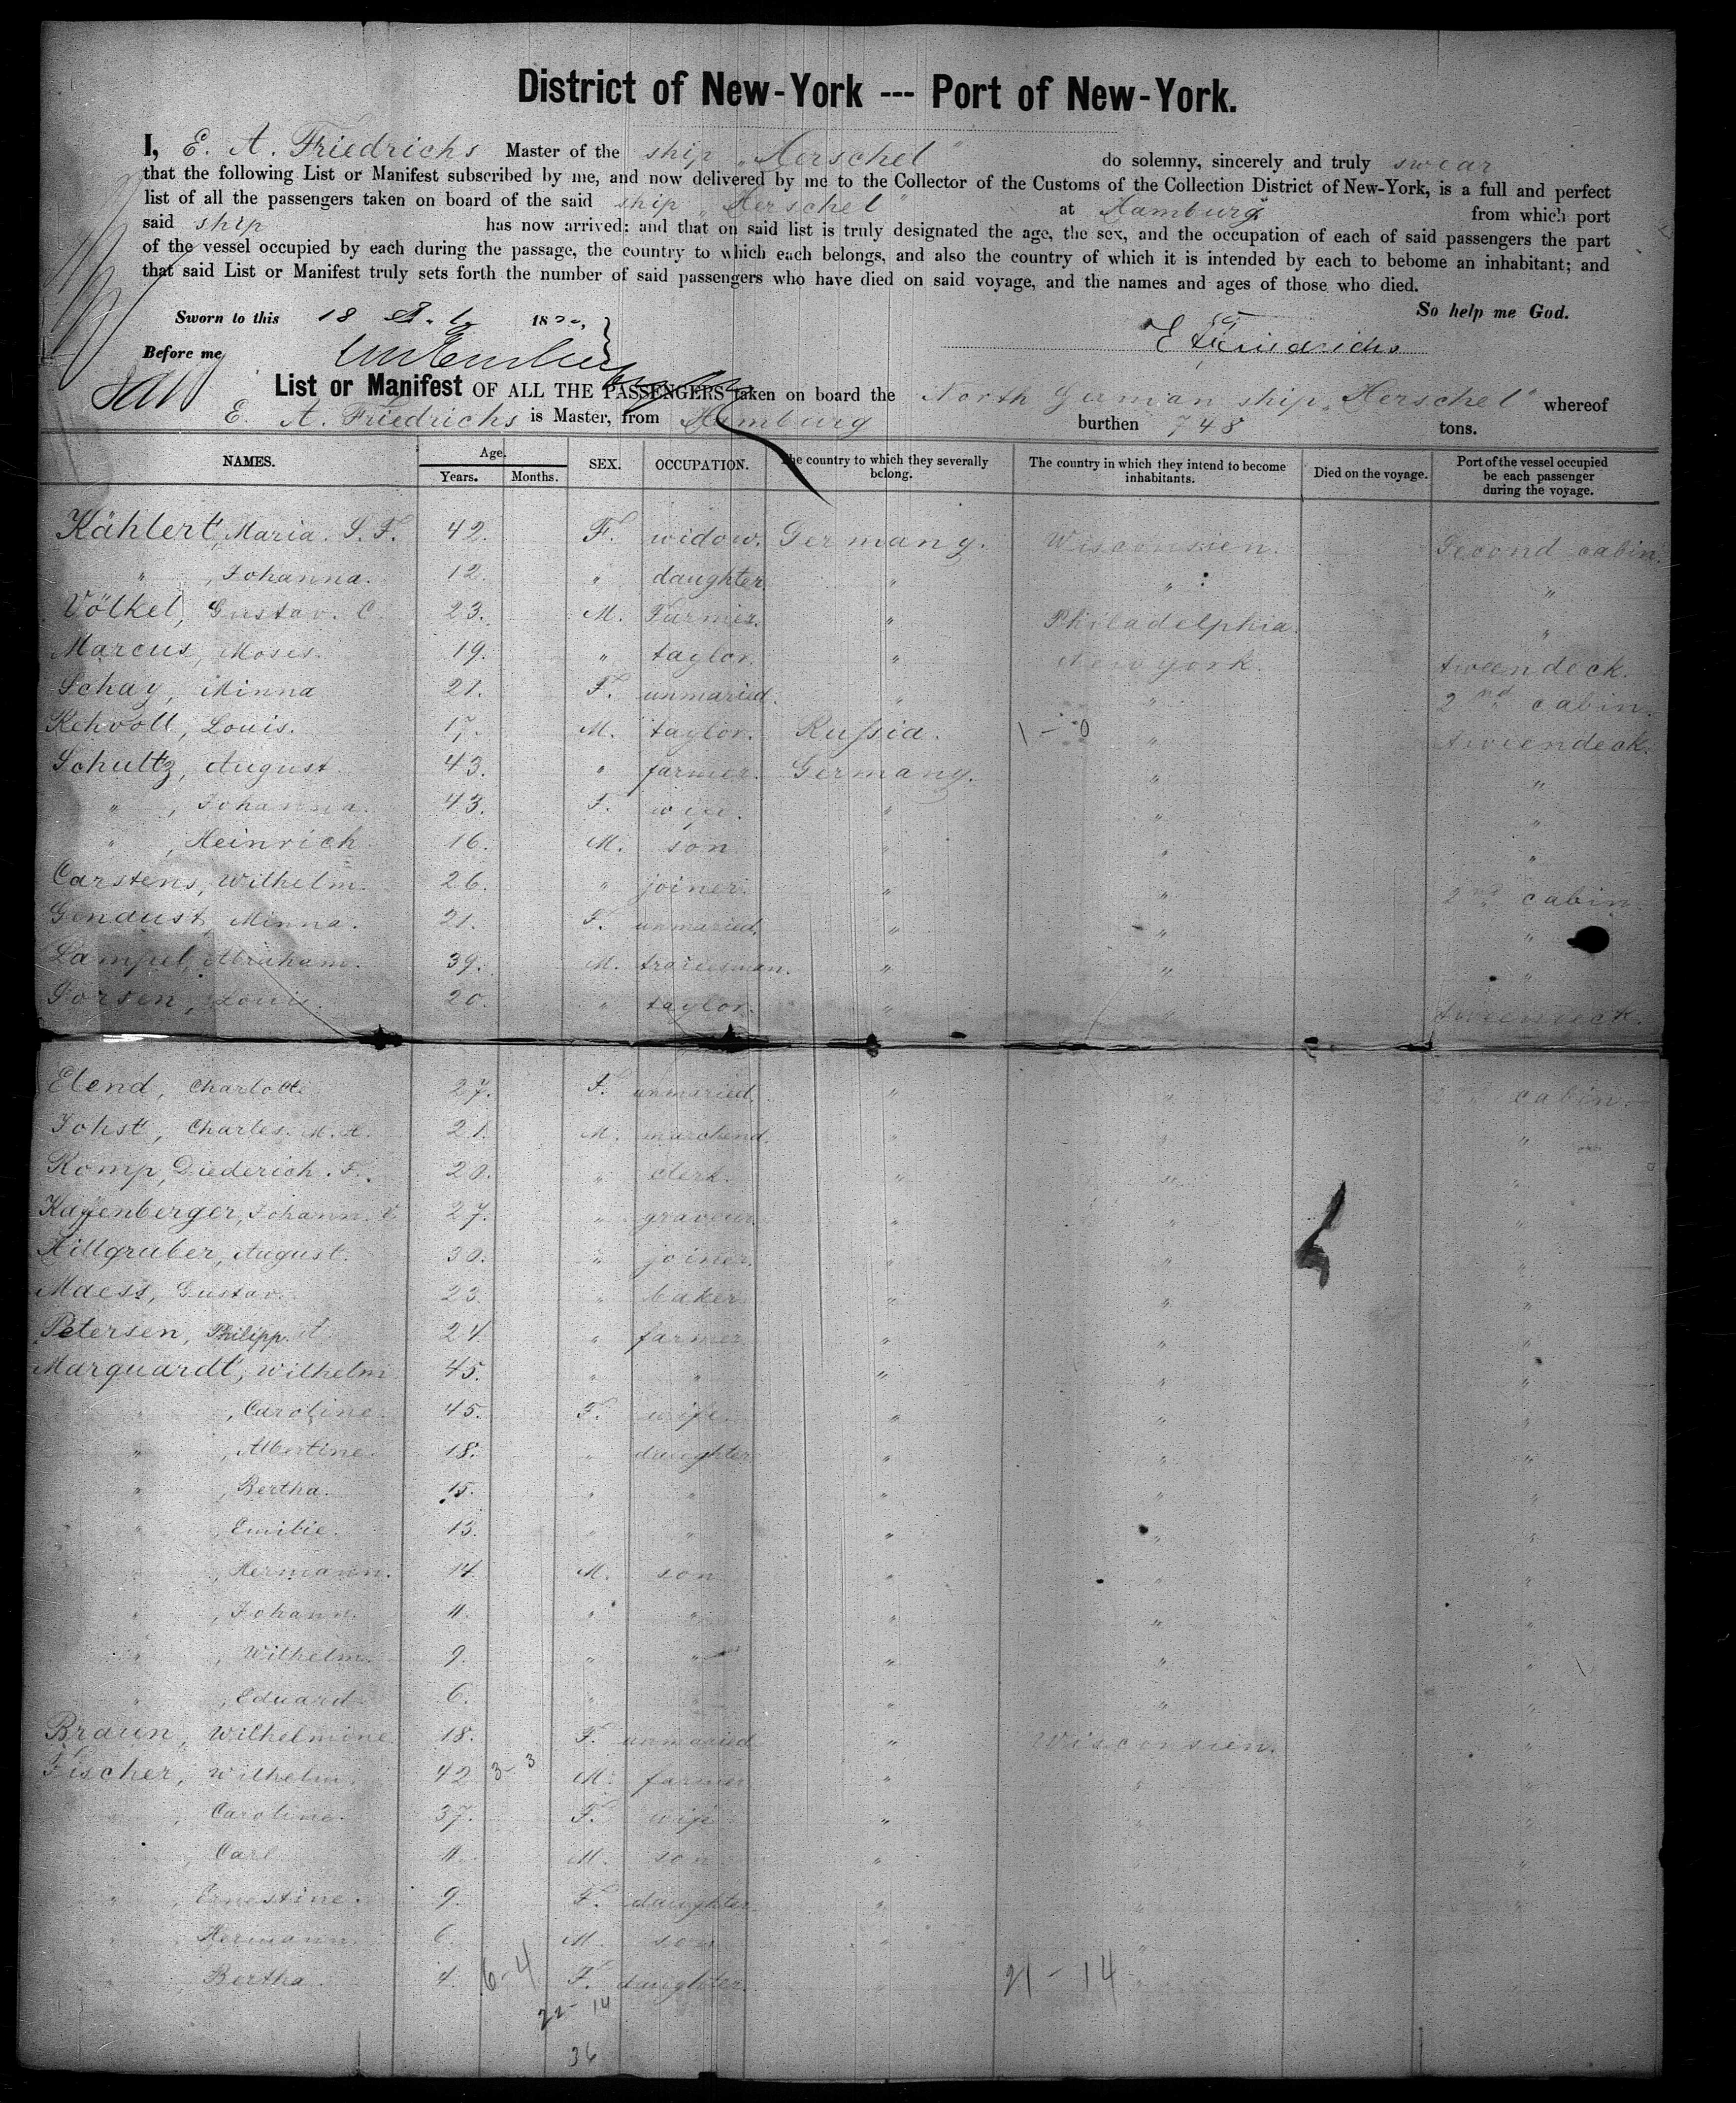 District of New-York --- Port of New-York.
I, E. A. Friedrichs Master of the ship „Herschel" do solemny, sincerely and truly swear
that the following List or Manifest subscribed by me, and now delivered by me to the Collector of the Customs of the Collection District of New-York, is a full and perfect
list of all the passengers taken on board of the said ship „Herschel" at Hamburg from which port
said ship has now arrived: and that on said list is truly designated the age, the sex, and the occupation of each of said passengers the part
of the vessel occupied by each during the passage, the country to which each belongs, and also the country of which it is intended by each to bebome an inhabitant; and
that said List or Manifest truly sets forth the number of said passengers who have died on said voyage, and the names and ages of those who died.
So help me God.
Sworn to this 18 18
E A Friedrichs
Before me
List or Manifest OF ALL THE PASSENGERS taken on board the North German ship „Herschel" whereof
E. A. Friedrichs is Master, from Hamburg burthen 748 tons.
NAMES. Age. Years. Months. SEX. OCCUPATION. The country to which they severally belong. The country in which they intend to become inhabitants. Died on the voyage. Port of the vessel occupied be each passenger during the voyage.
Kählert, Maria. S. F. 42. F. widow. Germany. Wisconsien. Second cabin.
" , Johanna. 12. " daughter " " "
Völkel, Gustav. C. 23. M. Farmer. " Philadelphia. "
Marcus, Moses. 19. " taylor. " New york. tweendeck.
Schay, Minna 21. F. unmaried. " " 2nd cabin.
Kehvoll, Louis. 17. M. taylor. Russia. 1 - 0 " tweendeck.
Schultz, August. 43. " farmer. Germany. " "
" , Johanna. 43. F. wife. " " "
" , Heinrich. 16. M. son " " "
Carstens, Wilhelm. 26. " joiner. " " 2nd cabin.
Gendust, Minna. 21. F. unmaried. " " "
Lampel, Abraham. 39. M. tradesman. " " "
Jorsen, Louis. 20. " taylor. " " tweendeck.
Elend, Charlotte. 27. F. unmaried. " " cabin.
Johst, Charles. M. A. 21. M. marchend. " " "
Romp, Diederich. F. 20. " clerk. " " "
Kaffenberger, Johann. V. 27. " graveur. " " "
Hillgruber, August. 30. " joiner. " " "
Maess, Gustav. 23. " baker " " "
Petersen, Philipp. A. 24. " farmer. " " "
Marquardt, Wilhelm 45. " " " " "
" , Caroline. 45. F. wife. " " "
" , Albertine. 18. " daughter " " "
" , Bertha. 15. " " " " "
" , Emilie. 13. " " " " "
" , Hermann. 14. M. son " " "
" , Johann. 11. " " " " "
" , Wilhelm. 9. " " " " "
" , Eduard. 6. " " " " "
Braun, Wilhelmine. 18. F. unmaried " Wisconsien. "
Fischer, Wilhelm. 42. 3- 3 M. farmer " " "
" , Caroline. 37. F. wife " " "
" , Carl. 11. M. son " " "
" , Ernestine. 9. F. daughter. " " "
" , Hermann. 6. M. son " "
" , Bertha. 4. 6-4 F. daughter. 21 - 14
22- 14
36